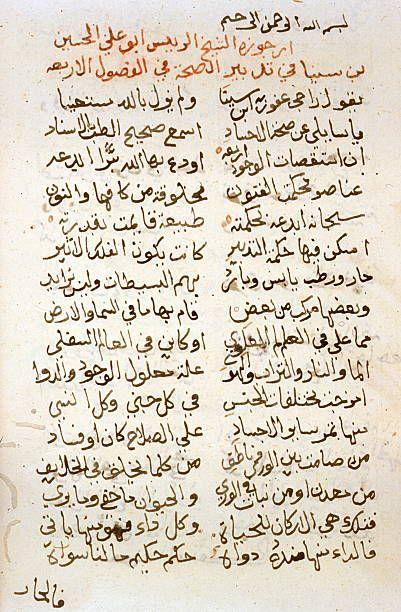 بسم الله الرحمن الرحيم
ارجوزة الشيخ الرييس ابو علي الحسين
بن سينا في تدبير الصحة في الفصول الاربعه
يقول راجي عفو ربه ابن سينا ولم يزل بالله مستعينا
يا سايلي عن صحة الاجساد اسمع صحيح الطب بالاسناد
ان اسطقصات الوجود اربعه اودع بها الله سرا ابدعه
عناصر محكمة الفنون مخلوقة من كافها والنون
سبحانه ابدعها بحكمته طبيعة قايمت بقدرته
امكن فيها حكمة التدبير كانت بكون الفلك الاثير
حار ورطب يابس وبارد بهم البسيطات ولبس
وبعضها مركب من بعض قام بها ما في السما والارض
مما علي في العالم العلوي او كاين في العالم السفلي
الما والنار والتراب والهوا علة معلول الوجود والدوا
امزجت مختلفات الجنس في كل جني وكل انسي
منها نمو ساير الاجساد علي الصلاح كان او فساد
من صامت بين الوري وناطق من كلما يخلق في الخلايق
من معدن او من نبات في الوري والحيوان ما خفي وما يري
فتلك هي الاركان للحياة وكل داء فهو منها ياتي
فالداء منها منه دواه حكم حكيم ما لنا سواه
فالحار